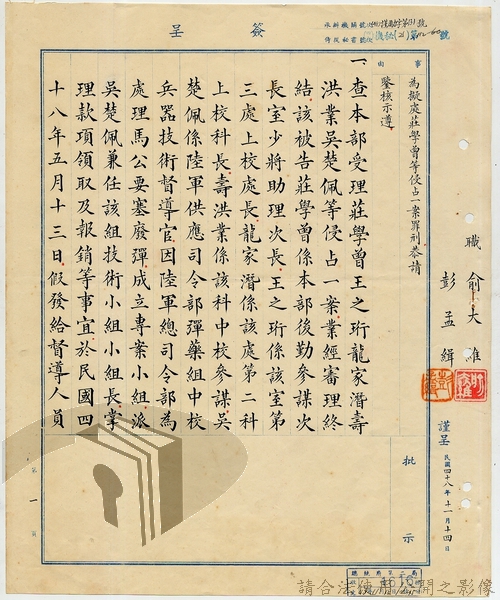 簽呈
事由
為擬處莊學曾等侵占一案罪刑恭請
鑒核示遵
一、查本部受理莊學曾王之珩龍家潛壽
洪業吳楚佩等侵占一案業經審理終
結該被告莊學曾係本部後勤參謀次
長室少將助理次長王之珩係該室第
三處上校處長龍家潛係該處第二科
上校科長壽洪業係該科中校參謀吳
楚佩係陸軍供應司令部彈藥組中校
兵器技術督導官因陸軍總司令部為
處理馬公要塞廢彈成立專案小組派
吳楚佩兼任該組技術小組小組長掌
理款項領取及報銷等事宜於民國四
十八年五月十三日假發給督導人員
職
俞大維
彭孟緝
謹呈
民國四十八年十一月十四日
批示
第一頁
請合法使用公開之影像